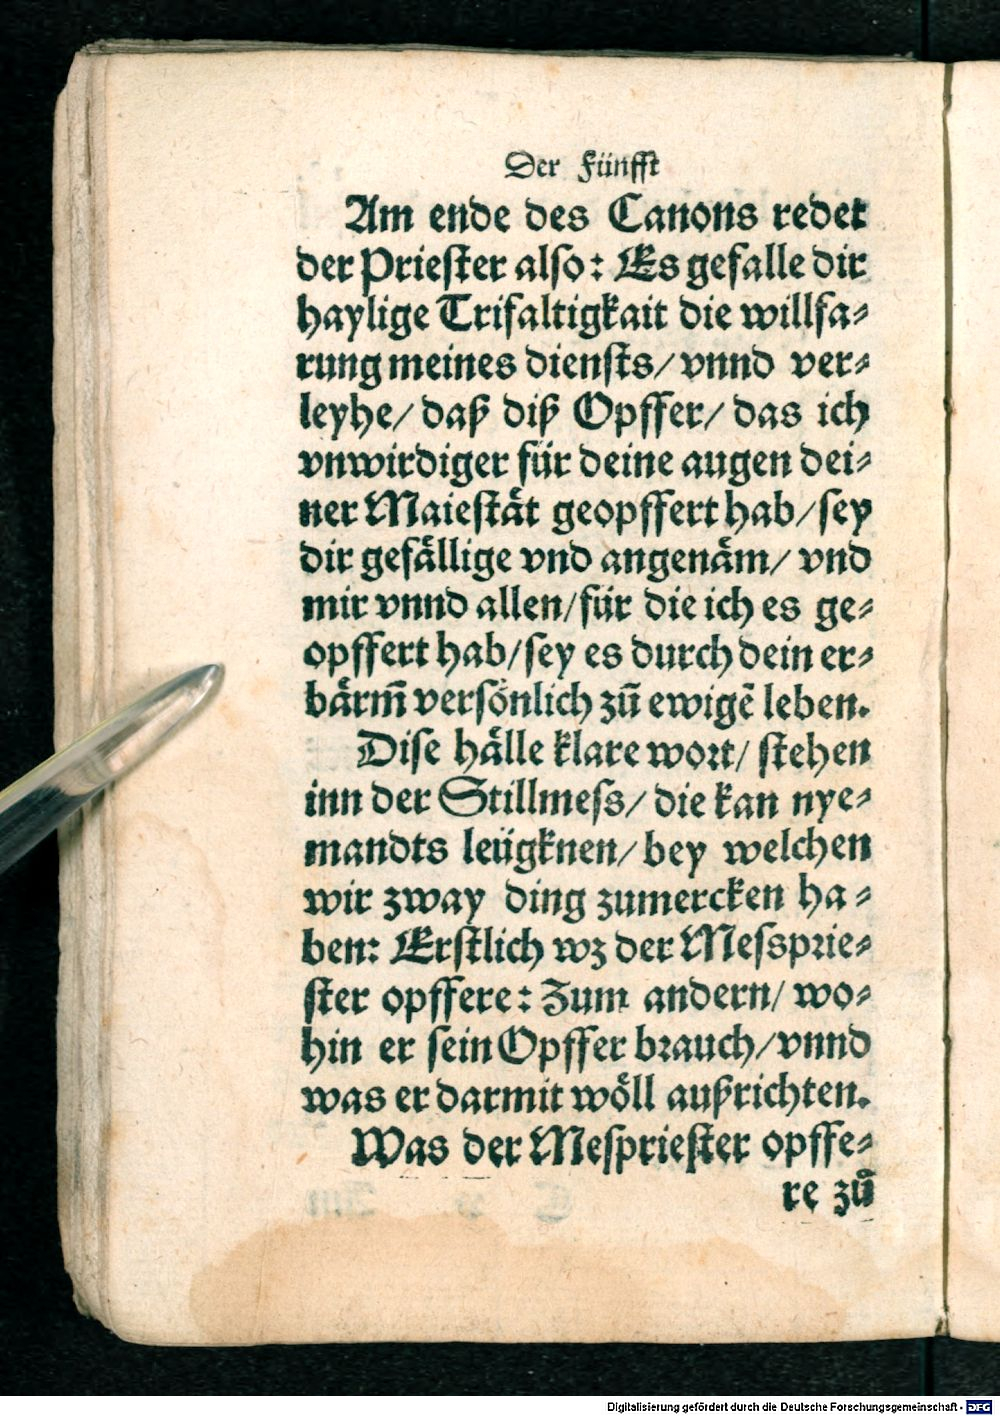 Der Fünfft
Am ende des Canons redet
der Priester also: Es gefalle dir
haylige Trifaltigkait die willfa⸗
rung meines diensts/ vnnd ver⸗
leyhe/ daß diß Opffer/ das ich
vnwirdiger für deine augen dei⸗
ner Maiestaͤt geopffert hab/ sey
dir gefaͤllige vnd angenaͤm/ vnd
mir vnnd allen/ für die ich es ge⸗
opffert hab/ sey es durch dein er⸗
baͤrm̃ versoͤnlich zũ ewigẽ leben.
Dise haͤlle klare wort/ stehen
inn der Stillmess/ die kan nye⸗
mandts leügknen/ bey welchen
wir zway ding zumercken ha⸗
ben: Erstlich wz der Messprie⸗
ster opffere: Zum andern/ wo⸗
hin er sein Opffer brauch/ vnnd
was er darmit woͤll außrichten.
Was der Mespriester opffe⸗
re zů
Digitalisierung gefördert durch die Deutsche Forschungsgemeinschaft - DFG